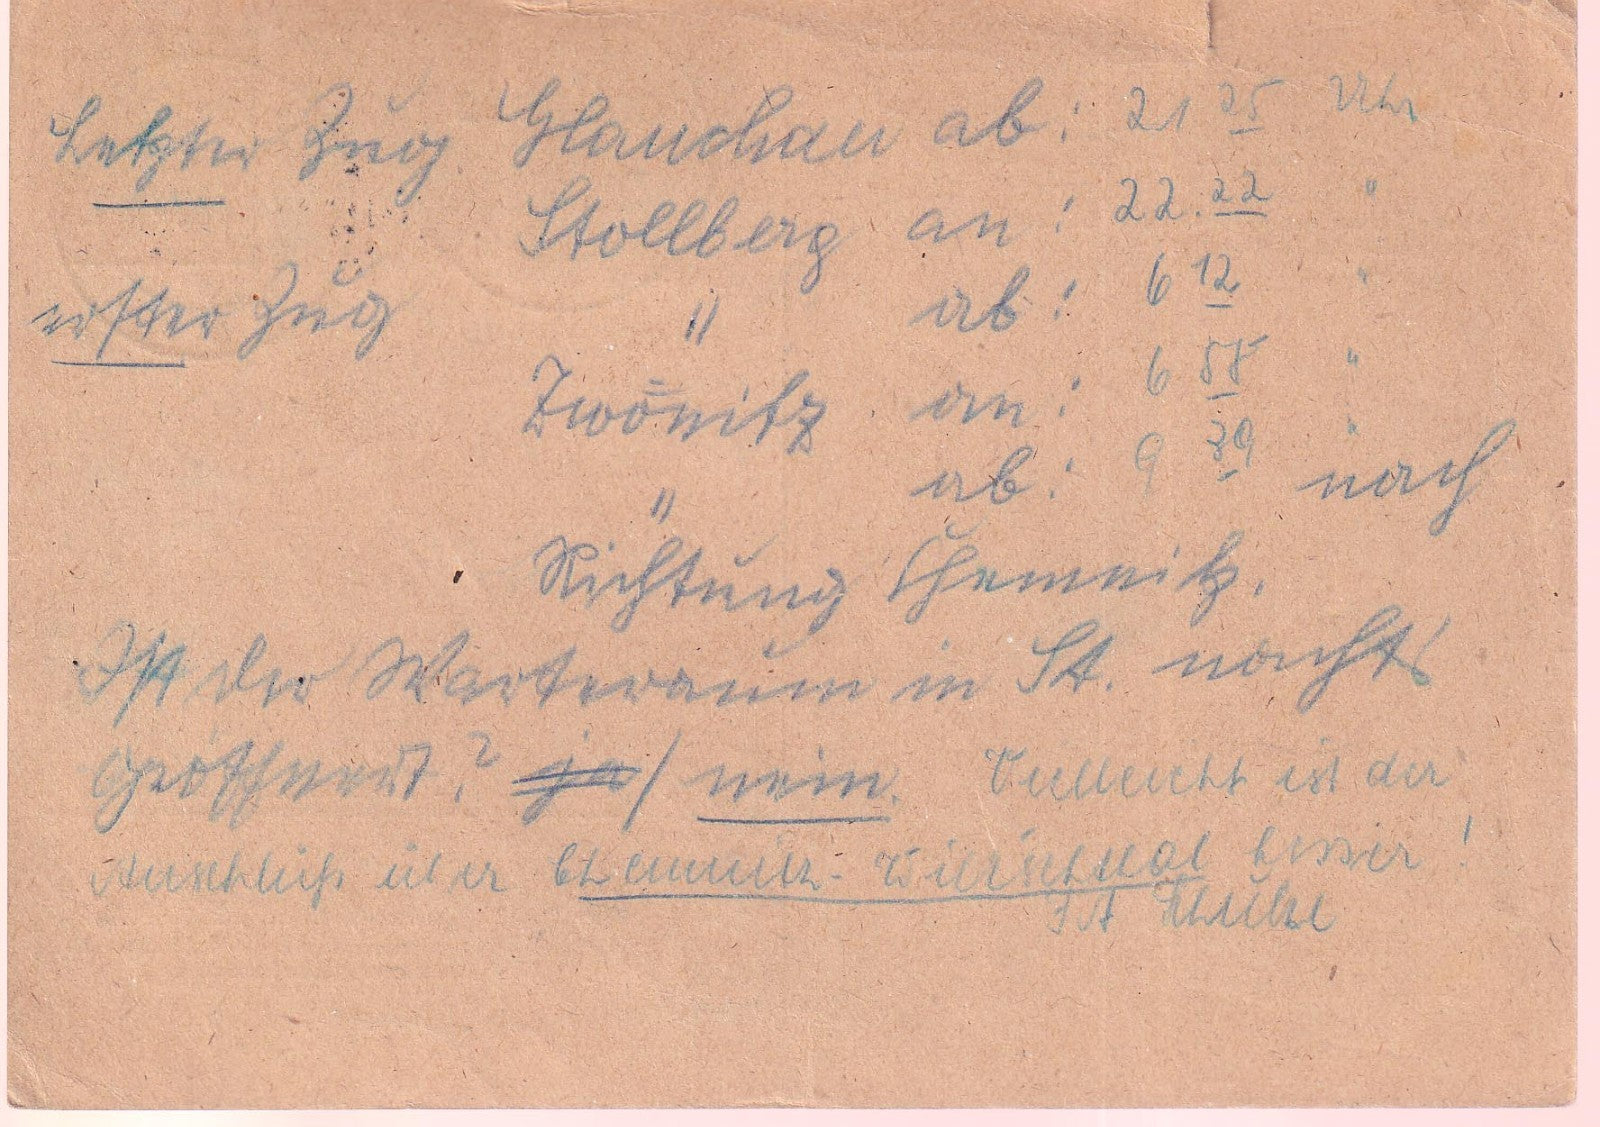 Letzter Zug Glauchau ab: 21 25 Uhr
Stollberg an: 22.22 "
erster Zug " ab: 6 12 "
Zwönitz an: 6 58 "
" ab: 9 39 " nach
Richtung Chemnitz.
Ist der Warteraum in St. nachts
geöffnet? ja / nein. Vielleicht ist der
Anschluß über Chemnitz - besser!